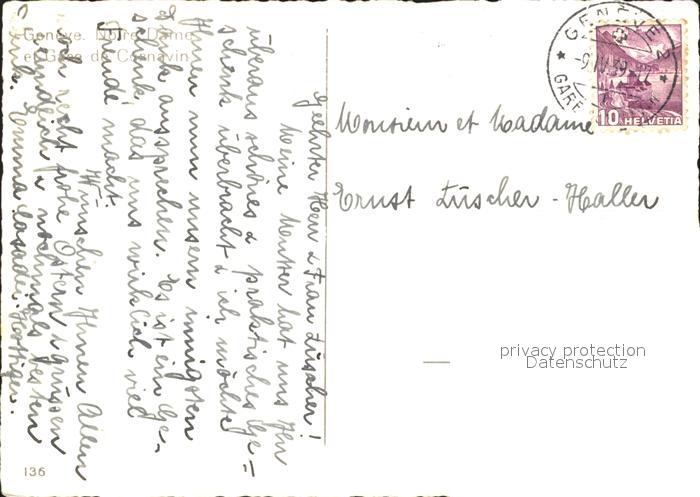 Genève. Notre Dame
et Gare de Cornavin
GENÈVE 2
-9.IV.39
GARE
10 HELVETIA
Monsieur et Madame
Ernst Lüscher-Haller
privacy protection
Datenschutz
Geehrter Herr & Frau Lüscher!
Meine Mutter hat uns Ihr
überaus schönes & praktisches Ge=
schenk überbracht & ich möchte
Ihnen nun unsern innigsten
Dank aussprechen. Es ist ein Ge-
schenk, das uns wirklich viel
Freude macht.
Wir wünschen Ihnen Allen
noch recht frohe Ostern & grüssen
& nochmals besten
Dank. Emma
136